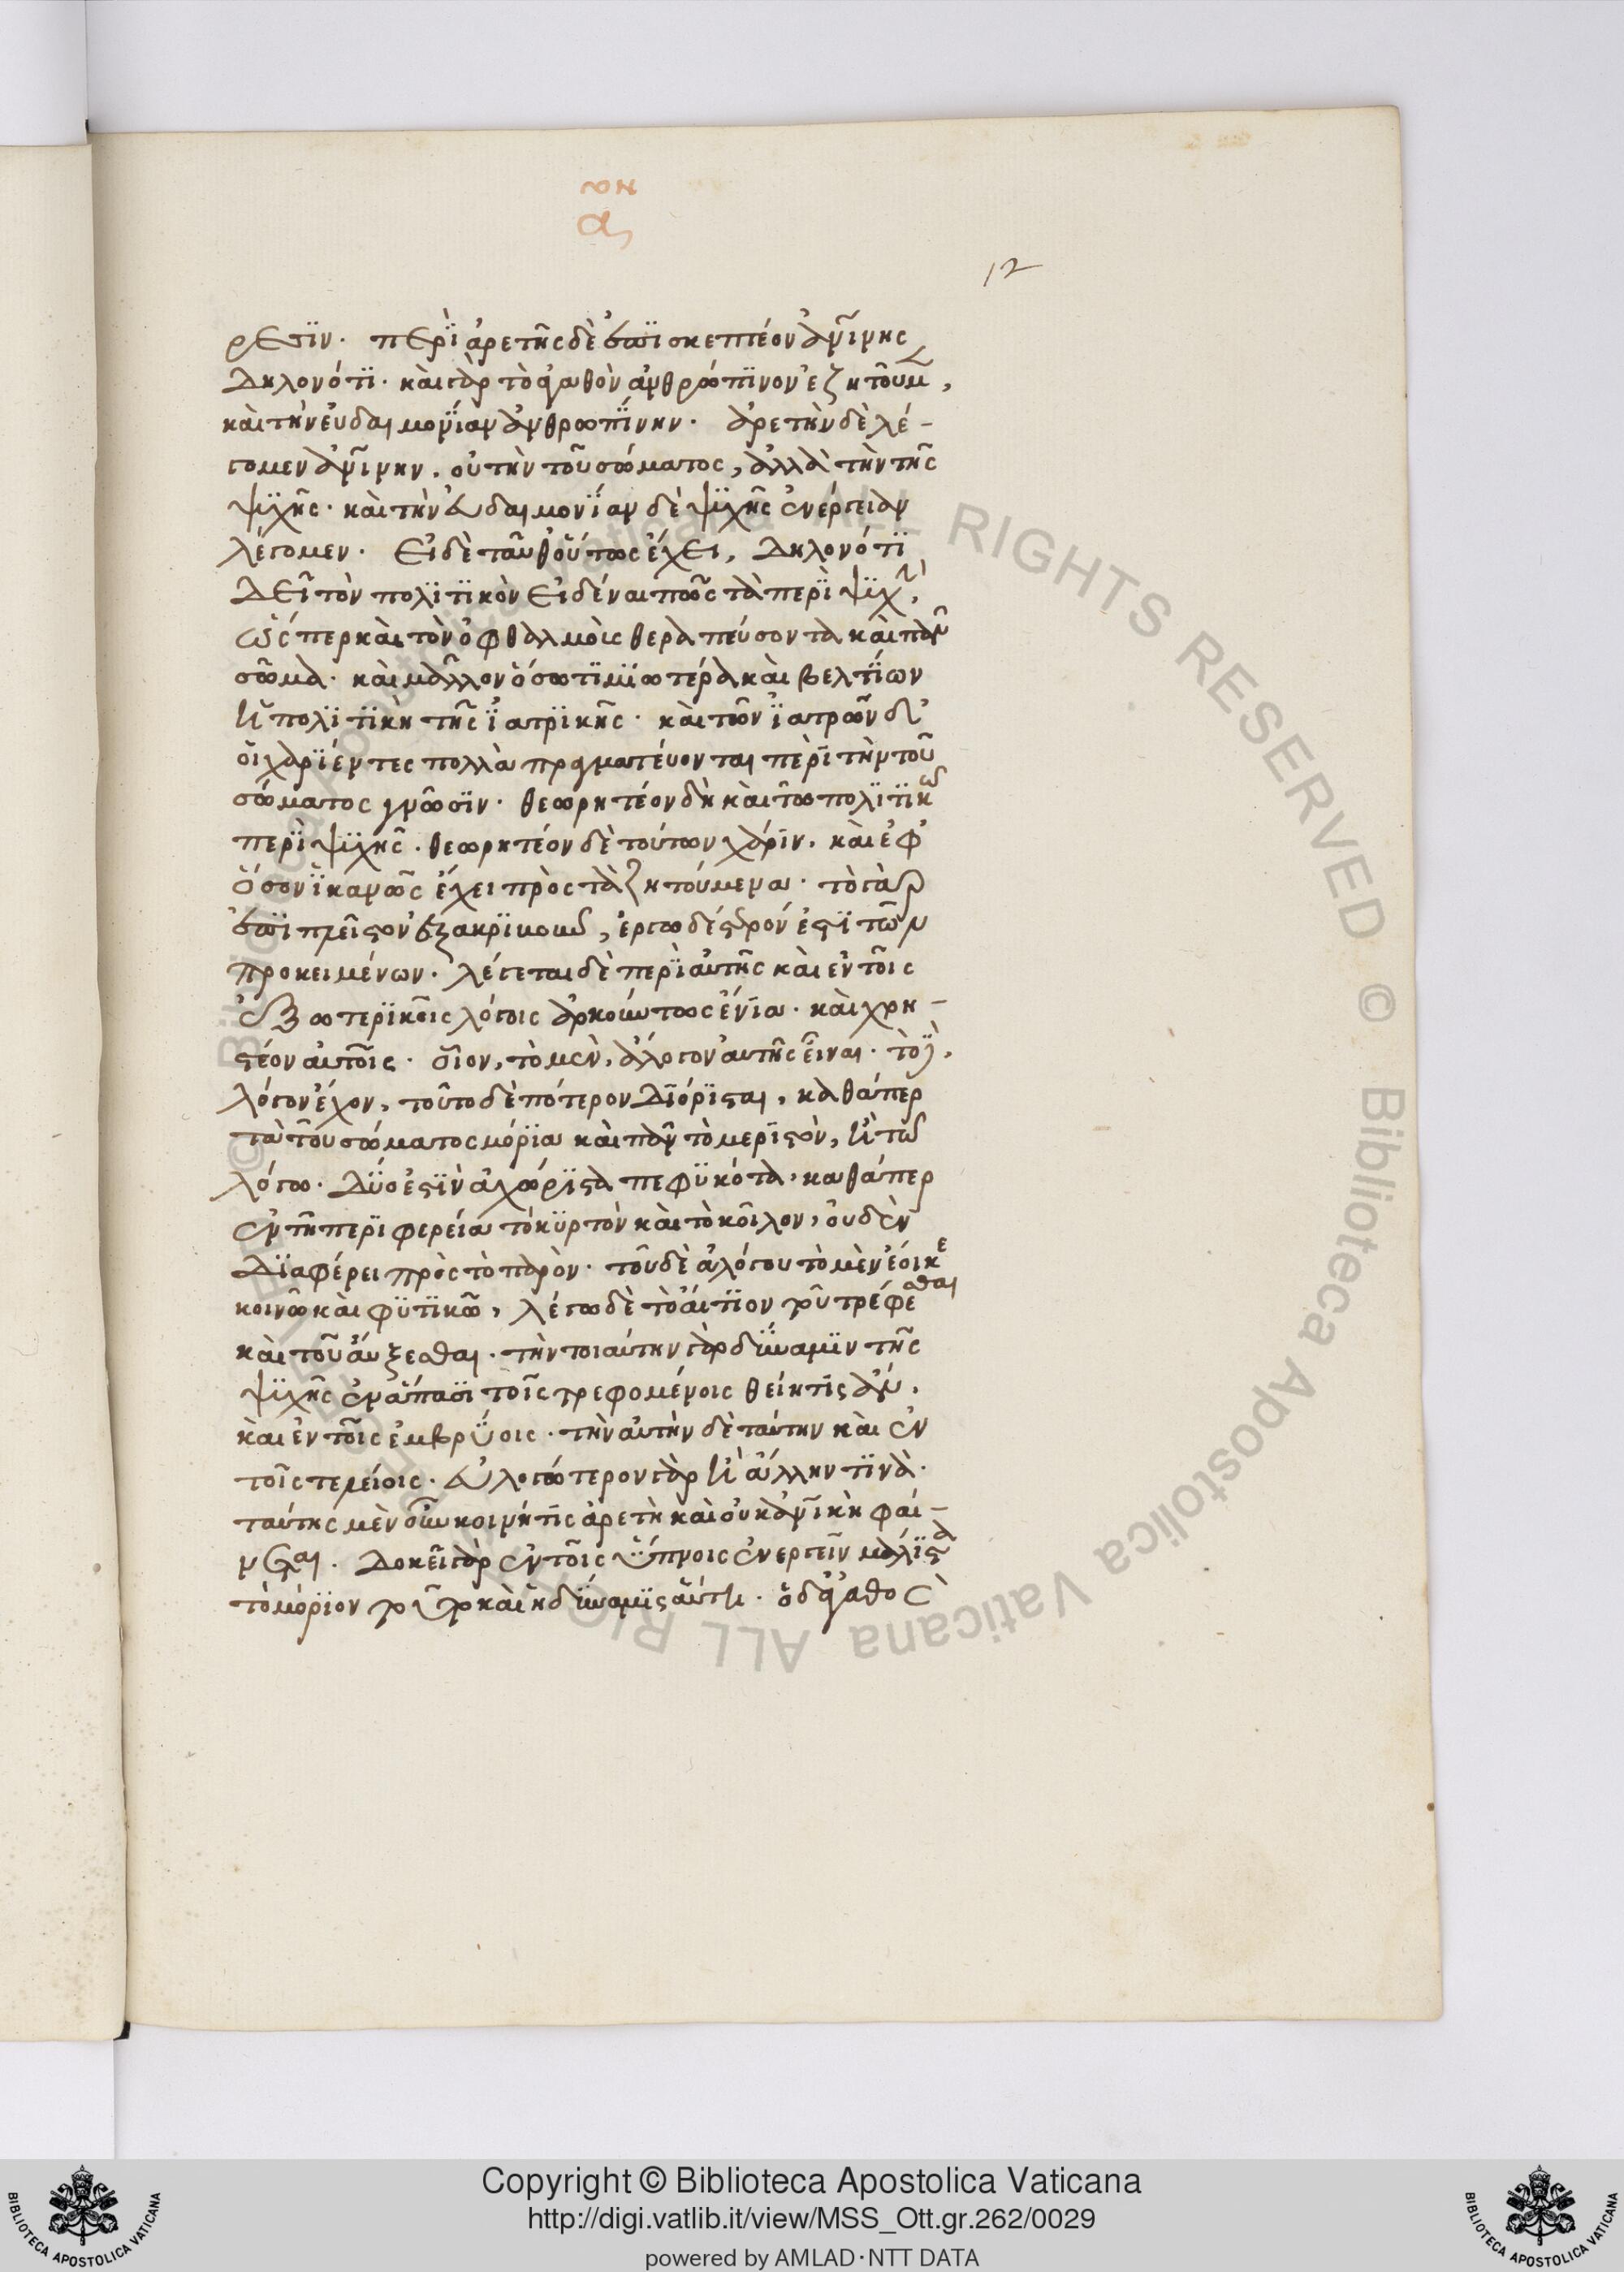 οκ
α
12
ρεσϊν· περὶ ἀρετῆς δὲ ἐπϊσκεπτέον ἀν̅ίνης
δηλονότϊ· καὶ γὰρ τὸ ἀγαθὸν ἀνθρώπϊνον ἐζητοῦμ,
καὶ τὴν εὐδαιμονίαν ἀνθρωπίνην· ἀρετὴν δὲ λέ-
γομεν ἀν̅ίνην. οὐ τὴν τοῦ σώματος, ἀλλὰ τὴν τῆς
ψϋχῆς· καὶ τὴν εὐδαιμονίαν δὲ ψϋχῆς ἐνέργειαν
λέγομεν· εἰ δὲ ταῦθ' οὕτως ἔχει, δηλονότϊ
δεῖ τὸν πολϊτϊκὸν εἰδέναι πῶς τὰ περὶ ψϋχῆ,
ὥσπερ καὶ τὸν ὀφθαλμοὺς θεραπεύσοντα καὶ πᾶν
σῶμα· καὶ μᾶλλον ὅσω τϊμϊωτέρα καὶ βελτΐων
ἡ πολϊτϊκὴ τῆς ἰατρϊκῆς· καὶ τῶν ἰατρῶν δ'
οἱ χαρΐεντες πολλὰ πραγματεύονται περὶ τὴν τοῦ
σώματος γνῶσϊν· θεωρητέον δὴ καὶ τῶ πολϊτϊκῶ
περὶ ψϋχῆς. θεωρητέον δὲ τούτων χάρϊν. καὶ ἐφ'
ὅσον ἱκανῶς ἔχει πρὸς τὰ ζητούμενα· τὸ γὰρ
ἐπὶ πλεῖστον ἐξακρϊβοῦν, ἐργωδέστερόν ἐστϊ τῶν
προκειμένων· λέγεται δὲ περὶ αὐτῆς καὶ ἐν τοῖς
ἐξωτερϊκοῖς λόγοις ἀρκούντως ἔνϊα· καὶ χρη-
στέον αὐτοῖς· οἷον, τὸ μὲν, ἄλογον αὐτῆς εἶναι· τὸ δὲ,
λόγον ἔχον, τοῦτο δὲ πότερον δϊόρϊσται, καθάπερ
τὰ τοῦ σώματος μόρϊα καὶ πᾶν τὸ μερϊστὸν, ἢ τῶ
λόγω· δύο ἐστϊν ἀχώρϊστα πεφϋκότα, καθάπερ
ἐν τῆ περϊφερεία τὸ κϋρτὸν καὶ τὸ κοῖλον, οὐδὲν
δϊαφέρει πρὸς τὸ παρὸν· τοῦ δὲ ἀλόγου τὸ μὲν ἔοικε
κοινῶ καὶ φϋτϊκῶ, λέγω δὲ τὸ αἴτϊον τοῦ τρέφεσθαι
καὶ τοῦ αὔξεσθαι· τὴν τοιαύτην γὰρ δύναμϊν τῆς
ψϋχῆς ἐν ἅπασϊ τοῖς τρεφομένοις θείη τϊς ἄν.
καὶ ἐν τοῖς ἐμβρύοις· τὴν αὐτὴν δὲ ταύτην καὶ ἐν
τοῖς τελείοις. εὐλογώτερον γὰρ ἢ ἄλλην τϊνὰ·
ταύτης μὲν οὖν κοινή τϊς ἀρετὴ καὶ οὐκ ἀν̅ικὴ φαί-
νεται. δοκεῖ γὰρ ἐν τοῖς ὕπνοις ἐνεργεῖν μάλϊστα
τὸ μόρϊον τοῦτο καὶ ἡ δύναμϊς αὕτη· ὁ δ' ἀγαθὸς
© Biblioteca Apostolica Vaticana ALL RIGHTS RESERVED © Biblioteca Apostolica Vaticana ALL RIGHTS RESERVED
Copyright © Biblioteca Apostolica Vaticana
http://digi.vatlib.it/view/MSS_Ott.gr.262/0029
powered by AMLAD·NTT DATA
BIBLIOTECA APOSTOLICA VATICANA
BIBLIOTECA APOSTOLICA VATICANA